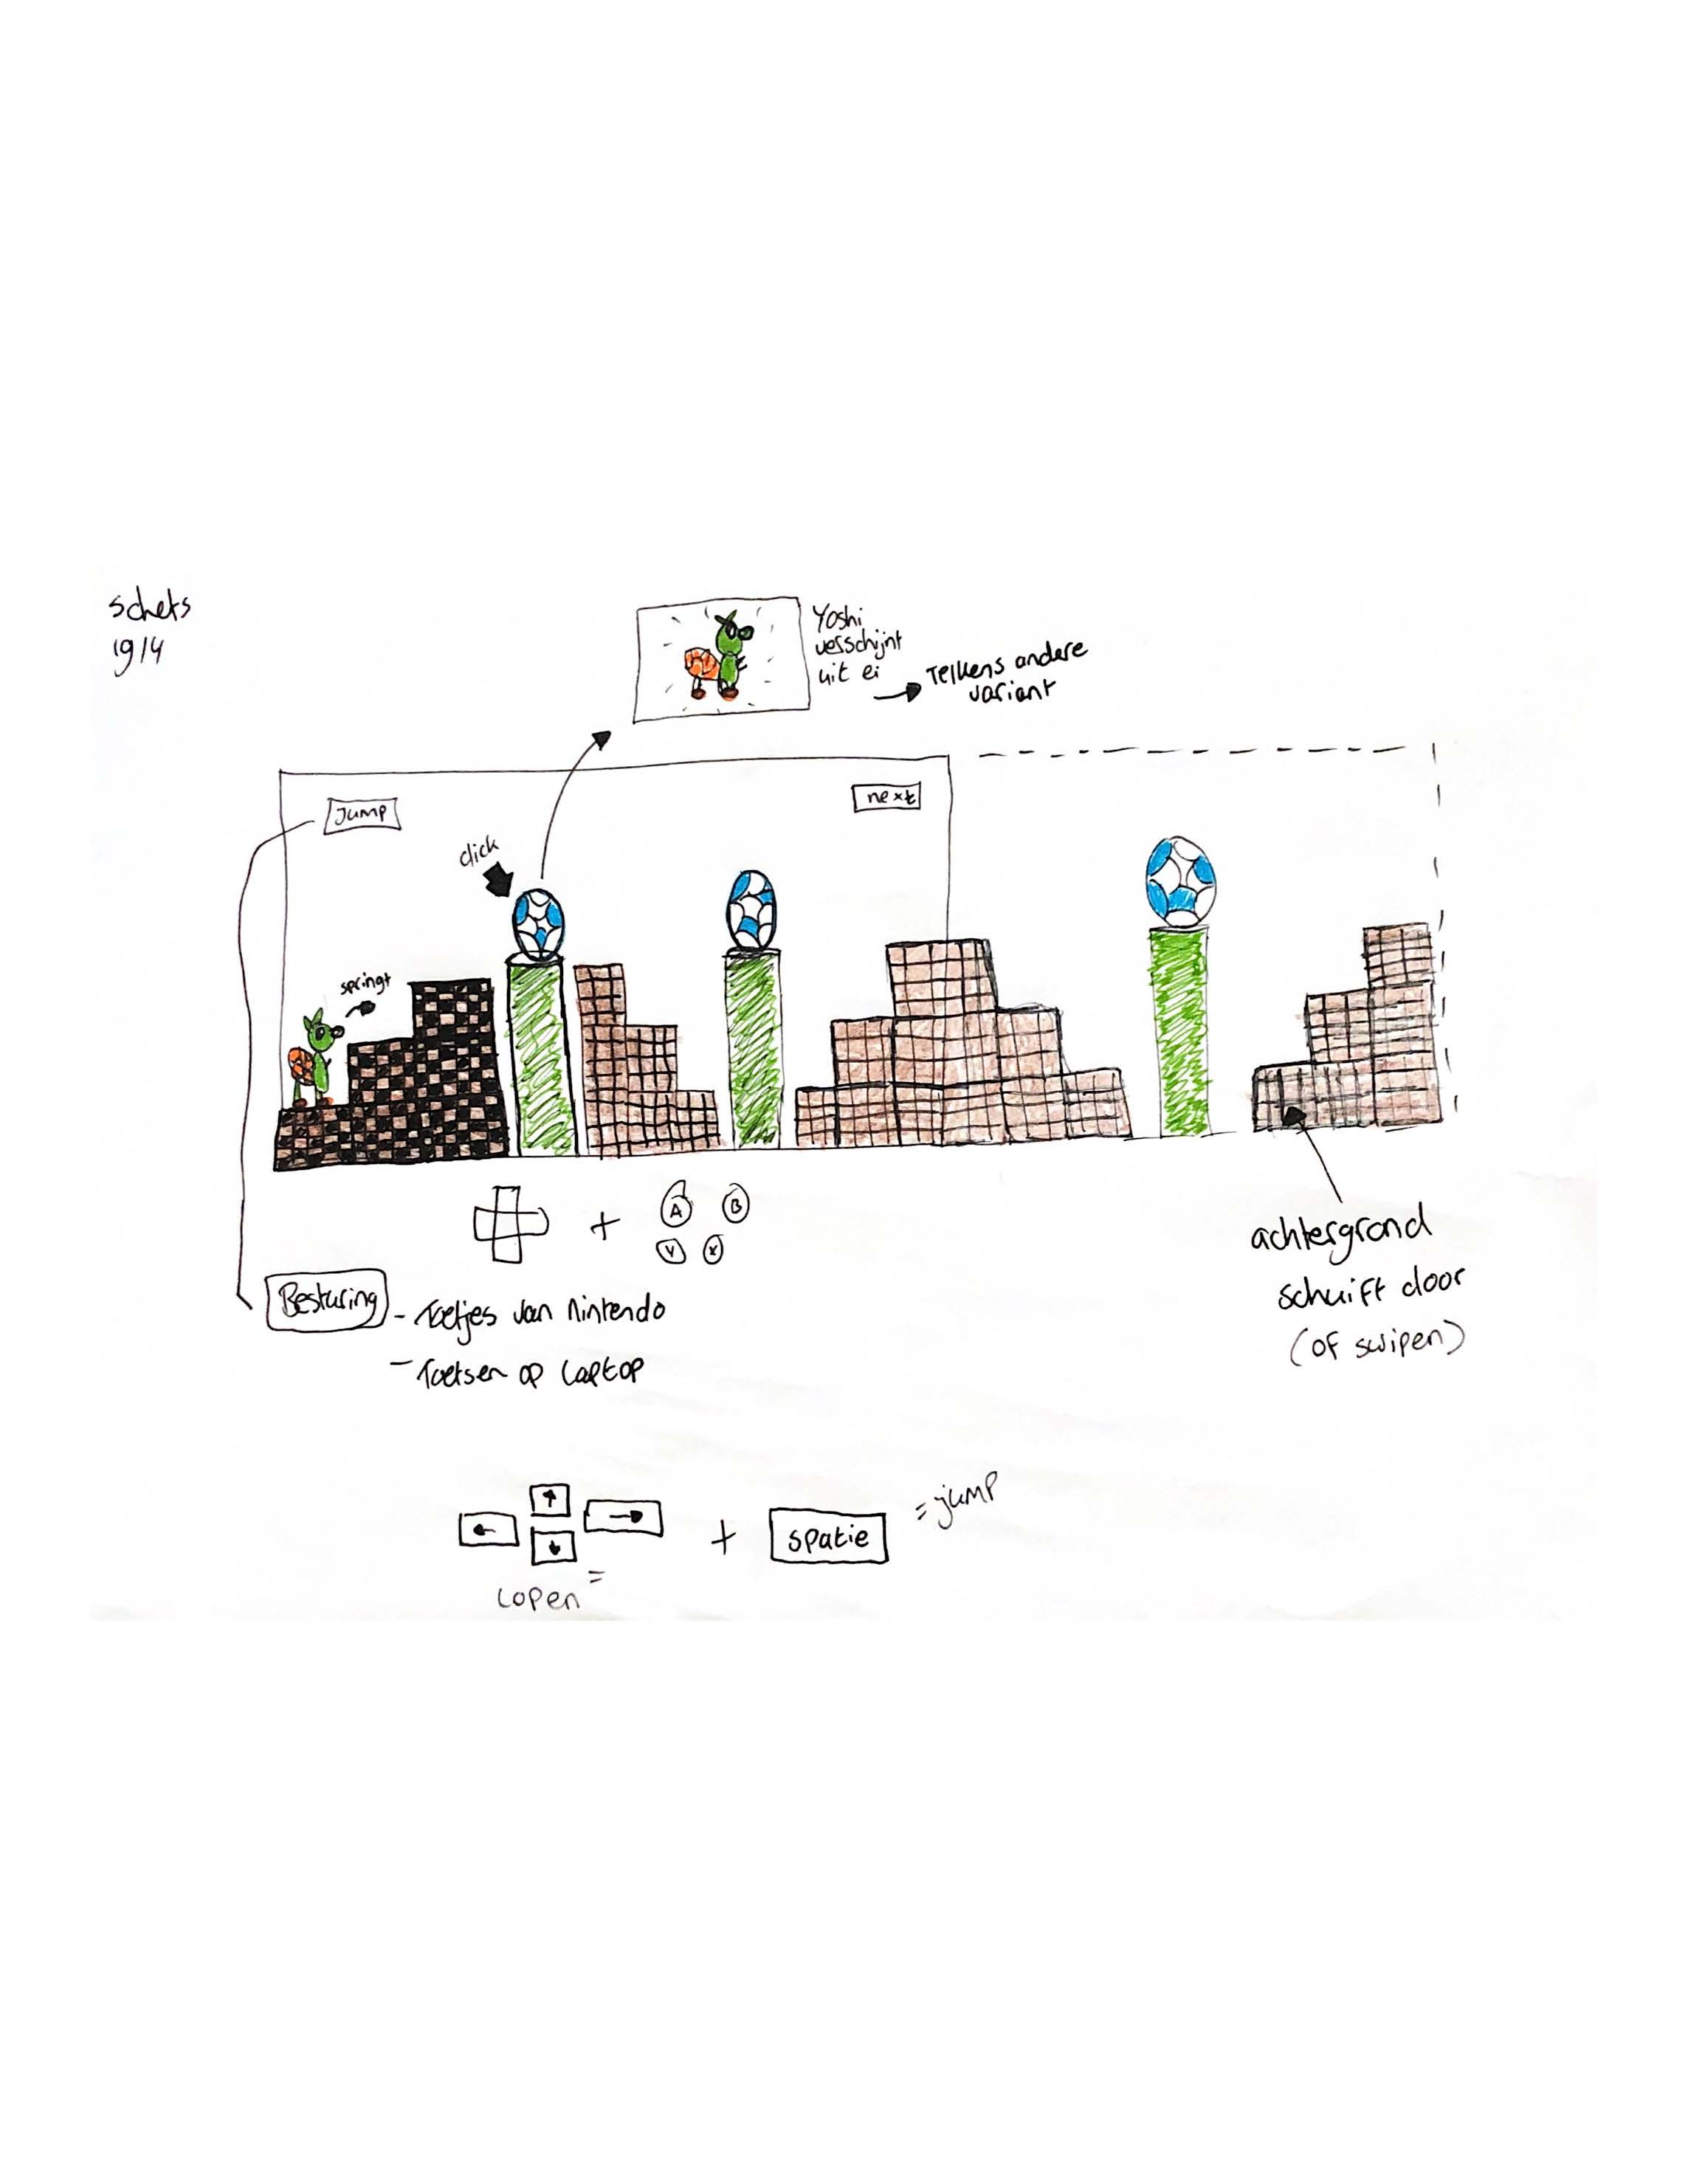 schets
19/4
Yoshi
verschijnt
uit ei
Telkens andere
variant
Jump
next
click
springt
A B
Y X
Besturing
- Toetjes van Nintendo
- Toetsen op laptop
achtergrond
schuift door
(of swipen)
spatie
= jump
=
lopen